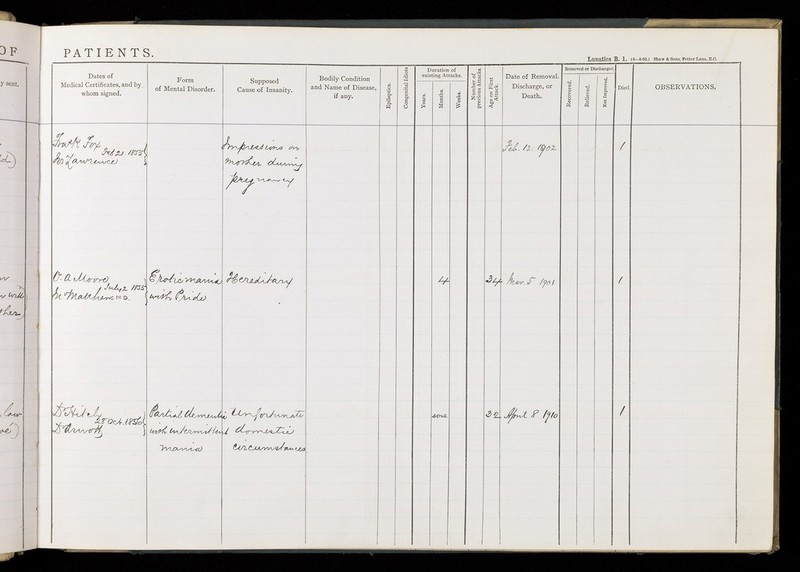 OF
PATIENTS.
Lunatics B. 1. Shaw & Sons, Fetter Lane, E.C.
y sent.
Dates of
Medical Certificates, and by
whom signed.
Form
of Mental Disorder.
Supposed
Cause of Insanity.
Bodily Condition
and Name of Disease,
if any.
Epileptics.
Congenital Idiots
Duration of
existing Attacks.
Years.
Months.
Weeks.
Number of
previous Attacks
Age on First
Attack.
Date of Removal.
Discharge, or
Death.
Removed or Discharged
Recovered.
Relieved.
Not Improved.
Died.
OBSERVATIONS.
Fox
Lawrence
Impressions on
mother during
pregnancy
Feb. 12. 1902
/
O. A. Moore
July 2 1855
Matthews M.D.
Erotic mania
with Pride
Hereditary
4
34
Mar. 5 1901
/
Dr Hitch
28 Oct. 1856
Partial dementia
with intermittent
mania
Unfortunate
domestic
circumstances
some
32
April 8 1910
/